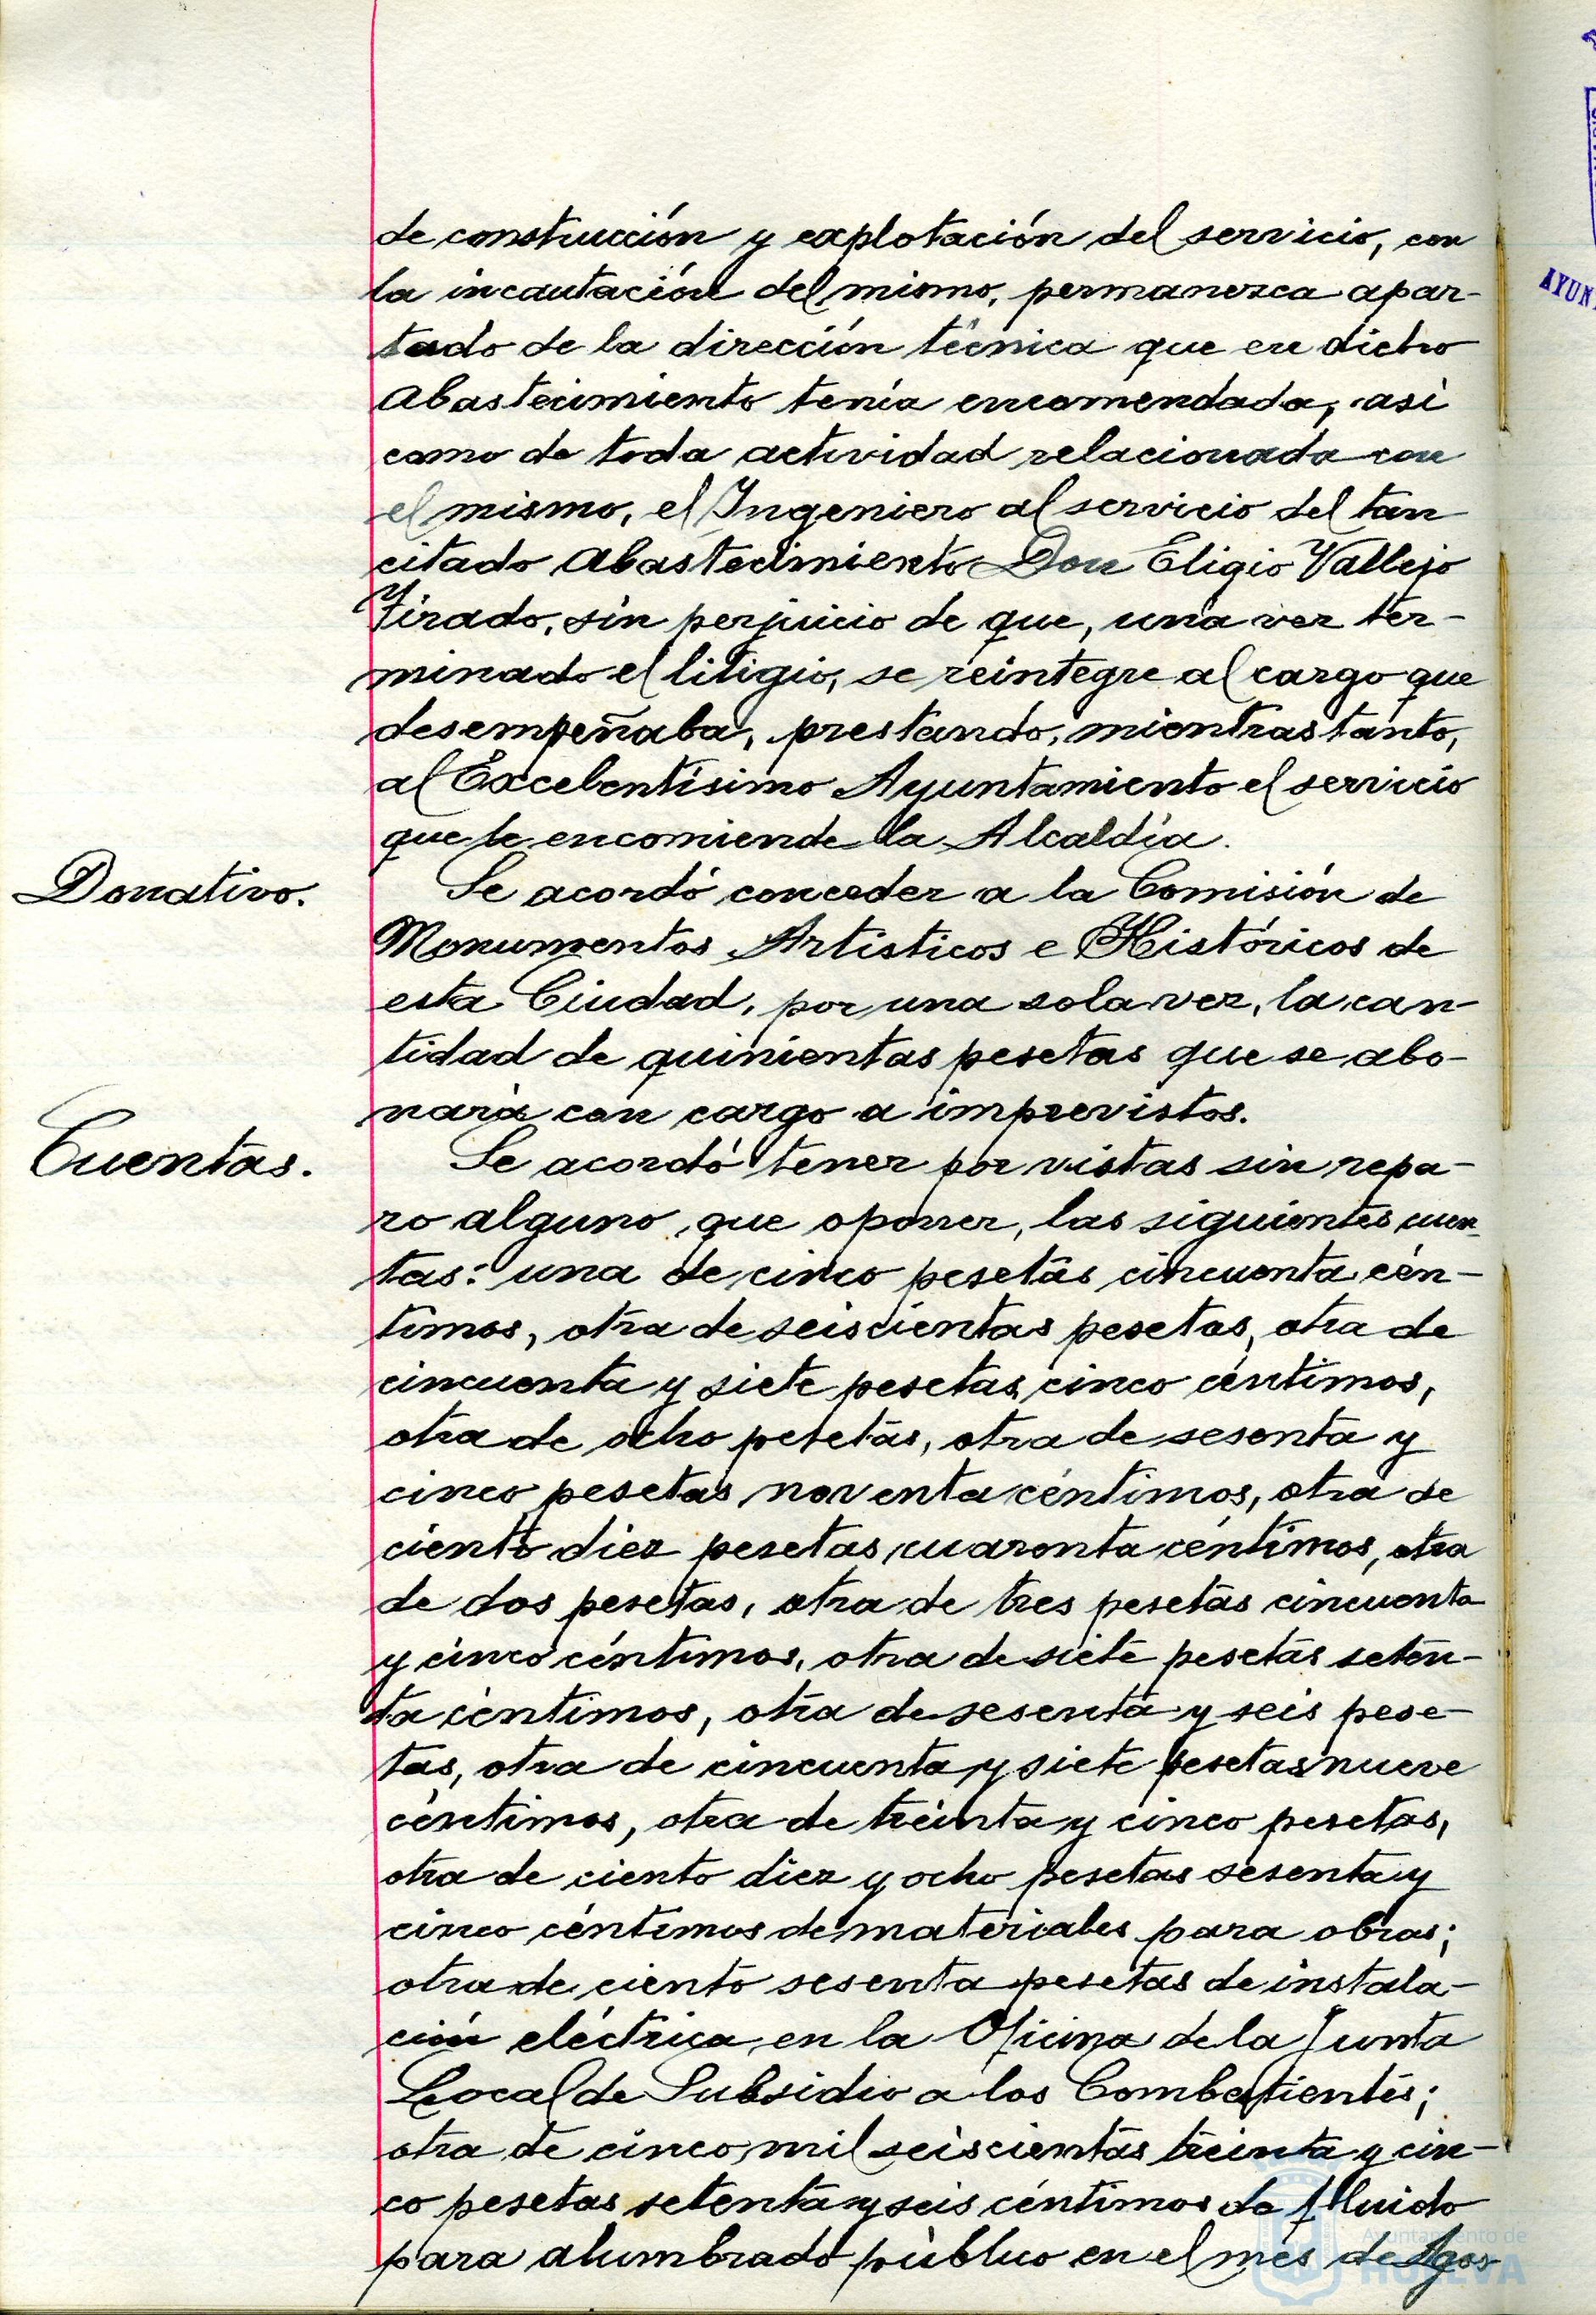 de construcción y explotación del servicio, con
la incautación del mismo, permanezca apar-
tado de la dirección técnica que en dicho
Abastecimiento tenía encomendada, así
como de toda actividad relacionada con
el mismo, el Ingeniero al servicio del tan
citado Abastecimiento Don Eligio Vallejo
Tirado, sin perjuicio de que, una vez ter-
minado el litigio, se reintegre al cargo que
desempeñaba, prestando, mientras tanto,
al Excelentísimo Ayuntamiento el servicio
que le encomiende la Alcaldía.
Donativo.
Se acordó conceder a la Comisión de
Monumentos Artísticos e Históricos de
esta Ciudad, por una sola vez, la can-
tidad de quinientas pesetas que se abo-
nará con cargo a imprevistos.
Cuentas.
Se acordó tener por vistas sin repa-
ro alguno que oponer, las siguientes cuen-
tas: una de cinco pesetas cincuenta cén-
timos, otra de seiscientas pesetas, otra de
cincuenta y siete pesetas cinco céntimos,
otra de ocho pesetas, otra de sesenta y
cinco pesetas noventa céntimos, otra de
ciento diez pesetas cuarenta céntimos, otra
de dos pesetas, otra de tres pesetas cincuenta
y cinco céntimos, otra de siete pesetas seten-
ta céntimos, otra de sesenta y seis pese-
tas, otra de cincuenta y siete pesetas nueve
céntimos, otra de treinta y cinco pesetas,
otra de ciento diez y ocho pesetas sesenta y
cinco céntimos de materiales para obras;
otra de ciento sesenta pesetas de instala-
ción eléctrica en la Oficina de la Junta
Local de Subsidio a los Combatientes;
otra de cinco mil seiscientas treinta y cin-
co pesetas setenta y seis céntimos de fluido
para alumbrado público en el mes de Agos-
AYUN
Ayuntamiento de
HUELVA